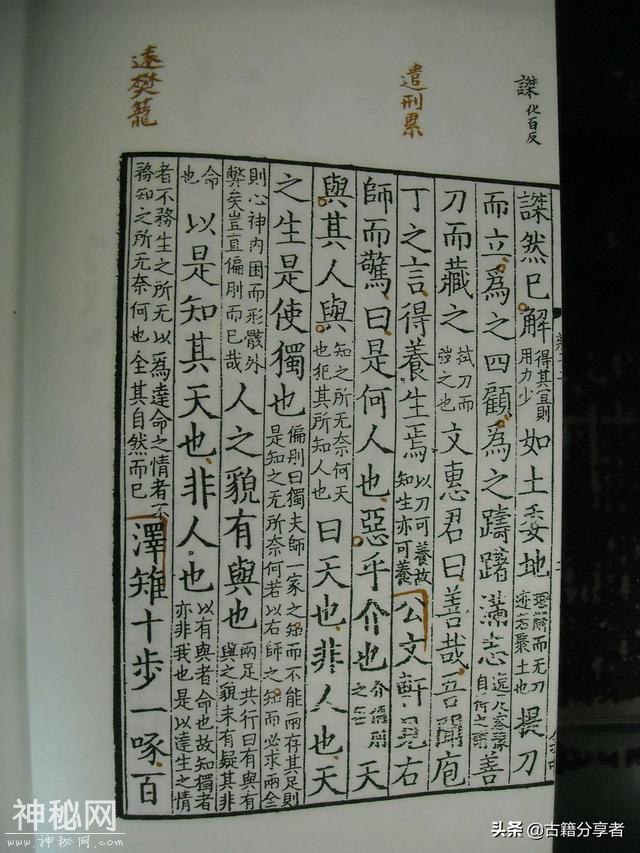 謋化百反
遣刑累
遠樊籠
謋然已解得其宜則用力少如土委地理解而无刀迹若聚土也提刀
而立為之四顧為之躊躇滿志自得之謂善
刀而藏之拭刀而弢之也文惠君曰善哉吾聞庖
丁之言得養生焉以刀可養故知生亦可養公文軒見右
師而驚曰是何人也惡乎介也介偏刖之名天
與其人與知之所无奈何天也犯其所知人也曰天也非人也天
之生是使獨也偏刖曰獨夫師一家之知而不能兩存其足則是知之无所奈何若以右師之知而必求兩全
則心神內困而形骸外弊矣豈直偏刖而已哉人之貌有與也兩足共行曰有與有與之貌未有疑其非
命也以是知其天也非人也以有與者命也故知獨者亦非我也是以達生之情
者不務生之所无以為達命之情者不務知之所无奈何也全其自然而已澤雉十步一啄百
神秘网
www.神秘网.com
头条 @古籍分享者